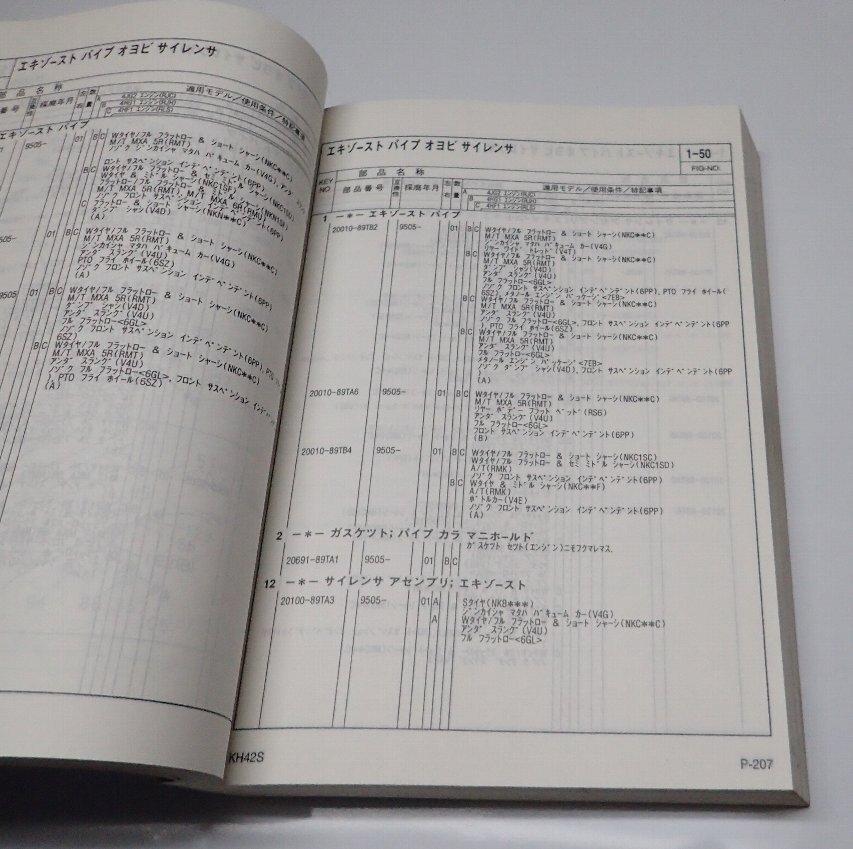 エキゾースト パイプ オヨビ サイレンサ
部 品 名 称
番 号 互換性 採廃年月 左右 数量 適用モデル/使用条件/特記事項
A 4JG2 エンジン(RJC)
B 4HG1 エンジン(RJH)
C 4HF1 エンジン(RLS)
エキゾースト パイプ
9505- 01 BC Wタイヤ/フル フラットロー & ショート シャーシ(NKC**C)
M/T MXA 5R(RMT)
ジンカイシャ マタハ バキューム カー(V4G), アンダ
ロント サスペンション インデペンデント(6PP)
BC Wタイヤ/フル フラットロー & セミ ミドル
(A)
9505- 01 BC Wタイヤ/フル フラットロー & ショート シャーシ(NKC**C)
M/T MXA 5R(RMT)
ジンカイシャ マタハ バキューム カー(V4G)
アンダ スラング(V4U)
PTO フライ ホイール(6SZ)
ノゾク フロント サスペンション インデペンデント(6PP)
(A)
9505 01 BC Wタイヤ/フル フラットロー & ショート シャーシ(NKC**C)
M/T MXA 5R(RMT)
ダンプ シャシ(V4D)
アンダ スラング(V4U)
フル フラットロー<6GL>
ノゾク フロント サスペンション インデペンデント(6PP), PTO
6SZ)
BC Wタイヤ/フル フラットロー & ショート シャーシ(NKC**C)
M/T MXA 5R(RMT)
アンダ スラング(V4U)
ノゾク フル フラットロー<6GL>, フロント サスペンション インデ
), PTO フライ ホイール(6SZ)
(A)
エキゾースト パイプ オヨビ サイレンサ
1-50
FIG-NO.
KEY NO. 部 品 名 称
部 品 番 号 互換性 採廃年月 左右 数量 適用モデル/使用条件/特記事項
A 4JG2 エンジン(RJC)
B 4HG1 エンジン(RJH)
C 4HF1 エンジン(RLS)
1 -*- エキゾースト パイプ
20010-89TB2 9505- 01 BC Wタイヤ/フル フラットロー & ショート シャーシ(NKC**C)
M/T MXA 5R(RMT)
ジンカイシャ マタハ バキューム カー(V4G)
リヤー ワイド トレッド(V4T)
BC Wタイヤ/フル フラットロー & ショート シャーシ(NKC**C)
M/T MXA 5R(RMT)
ダンプ シャシ(V4D)
アンダ スラング(V4U)
フル フラットロー<6GL>
ノゾク フロント サスペンション インデペンデント(6PP), PTO フライ ホイール(
6SZ), メタノール エンジン パッケージ<7EB>
BC Wタイヤ/フル フラットロー & ショート シャーシ(NKC**C)
M/T MXA 5R(RMT)
アンダ スラング(V4U)
ノゾク フル フラットロー<6GL>, フロント サスペンション インデペンデント(6PP
), PTO フライ ホイール(6SZ)
BC Wタイヤ/フル フラットロー & ショート シャーシ(NKC**C)
M/T MXA 5R(RMT)
アンダ スラング(V4U)
フル フラットロー<6GL>
メタノール エンジン パッケージ<7EB>
ノゾク ダンプ シャシ(V4D), フロント サスペンション インデペンデント(6PP
)
(A)
20010-89TA6 9505- 01 BC Wタイヤ/フル フラットロー & ショート シャーシ(NKC**C)
M/T MXA 5R(RMT)
リヤー ボデー フラット ベッド(RS6)
アンダ スラング(V4U)
フル フラットロー<6GL>
フロント サスペンション インデペンデント(6PP)
(B)
20010-89TB4 9505- 01 BC Wタイヤ/フル フラットロー & ショート シャーシ(NKC1SC)
Wタイヤ/フル フラットロー & セミ ミドル シャーシ(NKC1SD)
A/T(RMK)
ノゾク フロント サスペンション インデペンデント(6PP)
BC Wタイヤ & ミドル シャーシ(NKC**F)
A/T(RMK)
ボトルカー(V4E)
ノゾク フロント サスペンション インデペンデント(6PP)
(A)
2 -*- ガスケツト; パイプ カラ マニホールド
ガスケット セツト(エンジン)ニモフクマレマス.
20691-89TA1 9505- 01 BC
12 -*- サイレンサ アセンブリ; エキゾースト
20100-89TA3 9505- 01 A Sタイヤ(NKB***)
ジンカイシャ マタハ バキューム カー(V4G)
A Wタイヤ/フル フラットロー & ショート シャーシ(NKC**C)
アンダ スラング(V4U)
フル フラットロー<6GL>
KH42S
P-207